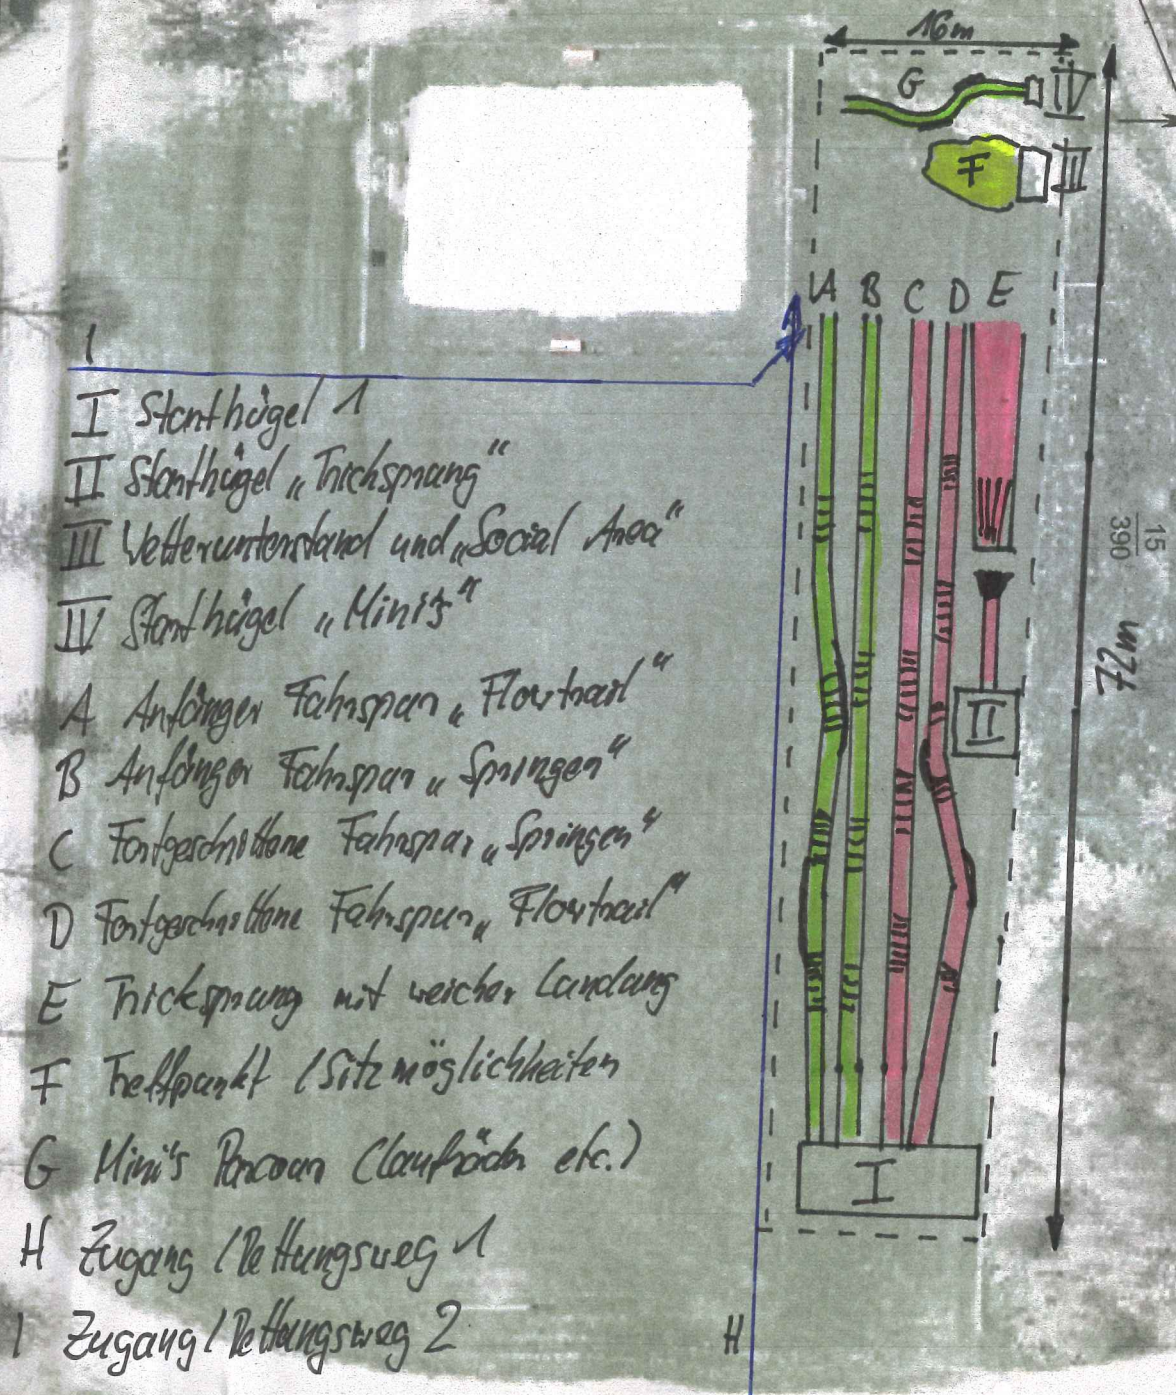 16m
G
IV
F
III
A B C D E
I
I Starthügel 1
II Starthügel „Tricksprung“
III Wetterunterstand und „Social Area“
IV Starthügel „Mini's“
A Anfänger Fahrspur „Flowtrail“
B Anfänger Fahrspur „Springen“
C Fortgeschrittene Fahrspur „Springen“
D Fortgeschrittene Fahrspur „Flowtrail“
E Tricksprung mit weicher Landung
F Treffpunkt / Sitzmöglichkeiten
G Mini's Parcour (Laufräder etc.)
H Zugang / Rettungsweg 1
I Zugang / Rettungsweg 2
15
390
72m
II
I
H